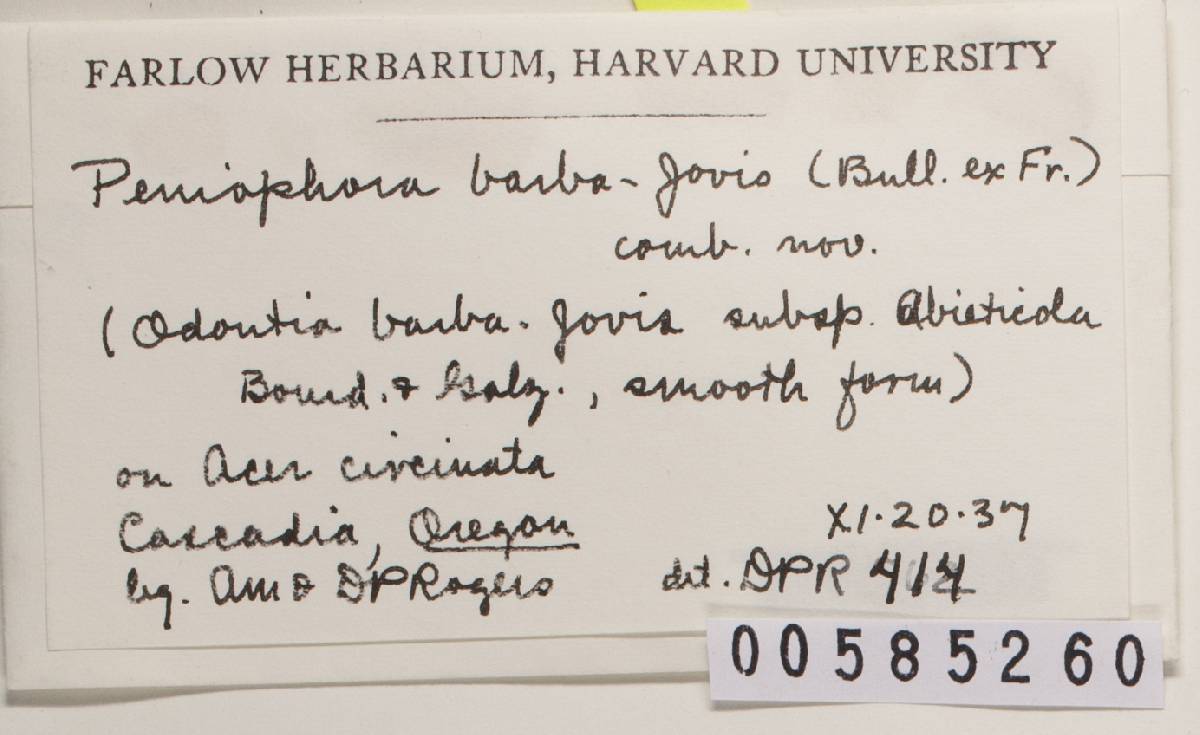 FARLOW HERBARIUM, HARVARD UNIVERSITY
Peniophora barba-Jovis (Bull. ex Fr.)
comb. nov.
(Odontia barba-Jovis subsp. Abieticola
Bourd. & Galz., smooth form)
on Acer circinata
Cascadia, Oregon
leg. AM & DPRogers
XI.20.37
det. DPR 414
00585260